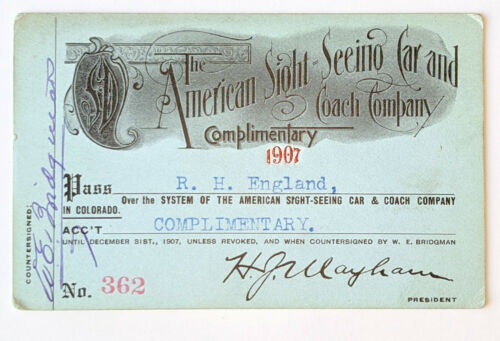 The
American Sight-Seeing Car and
Coach Company
Complimentary
1907
Pass R. H. England,
Over the SYSTEM OF THE AMERICAN SIGHT-SEEING CAR & COACH COMPANY
IN COLORADO.
ACC'T COMPLIMENTARY.
UNTIL DECEMBER 31ST., 1907, UNLESS REVOKED, AND WHEN COUNTERSIGNED BY W. E. BRIDGMAN
No. 362
H. J. Mayham
PRESIDENT
COUNTERSIGNED:
W E Bridgman